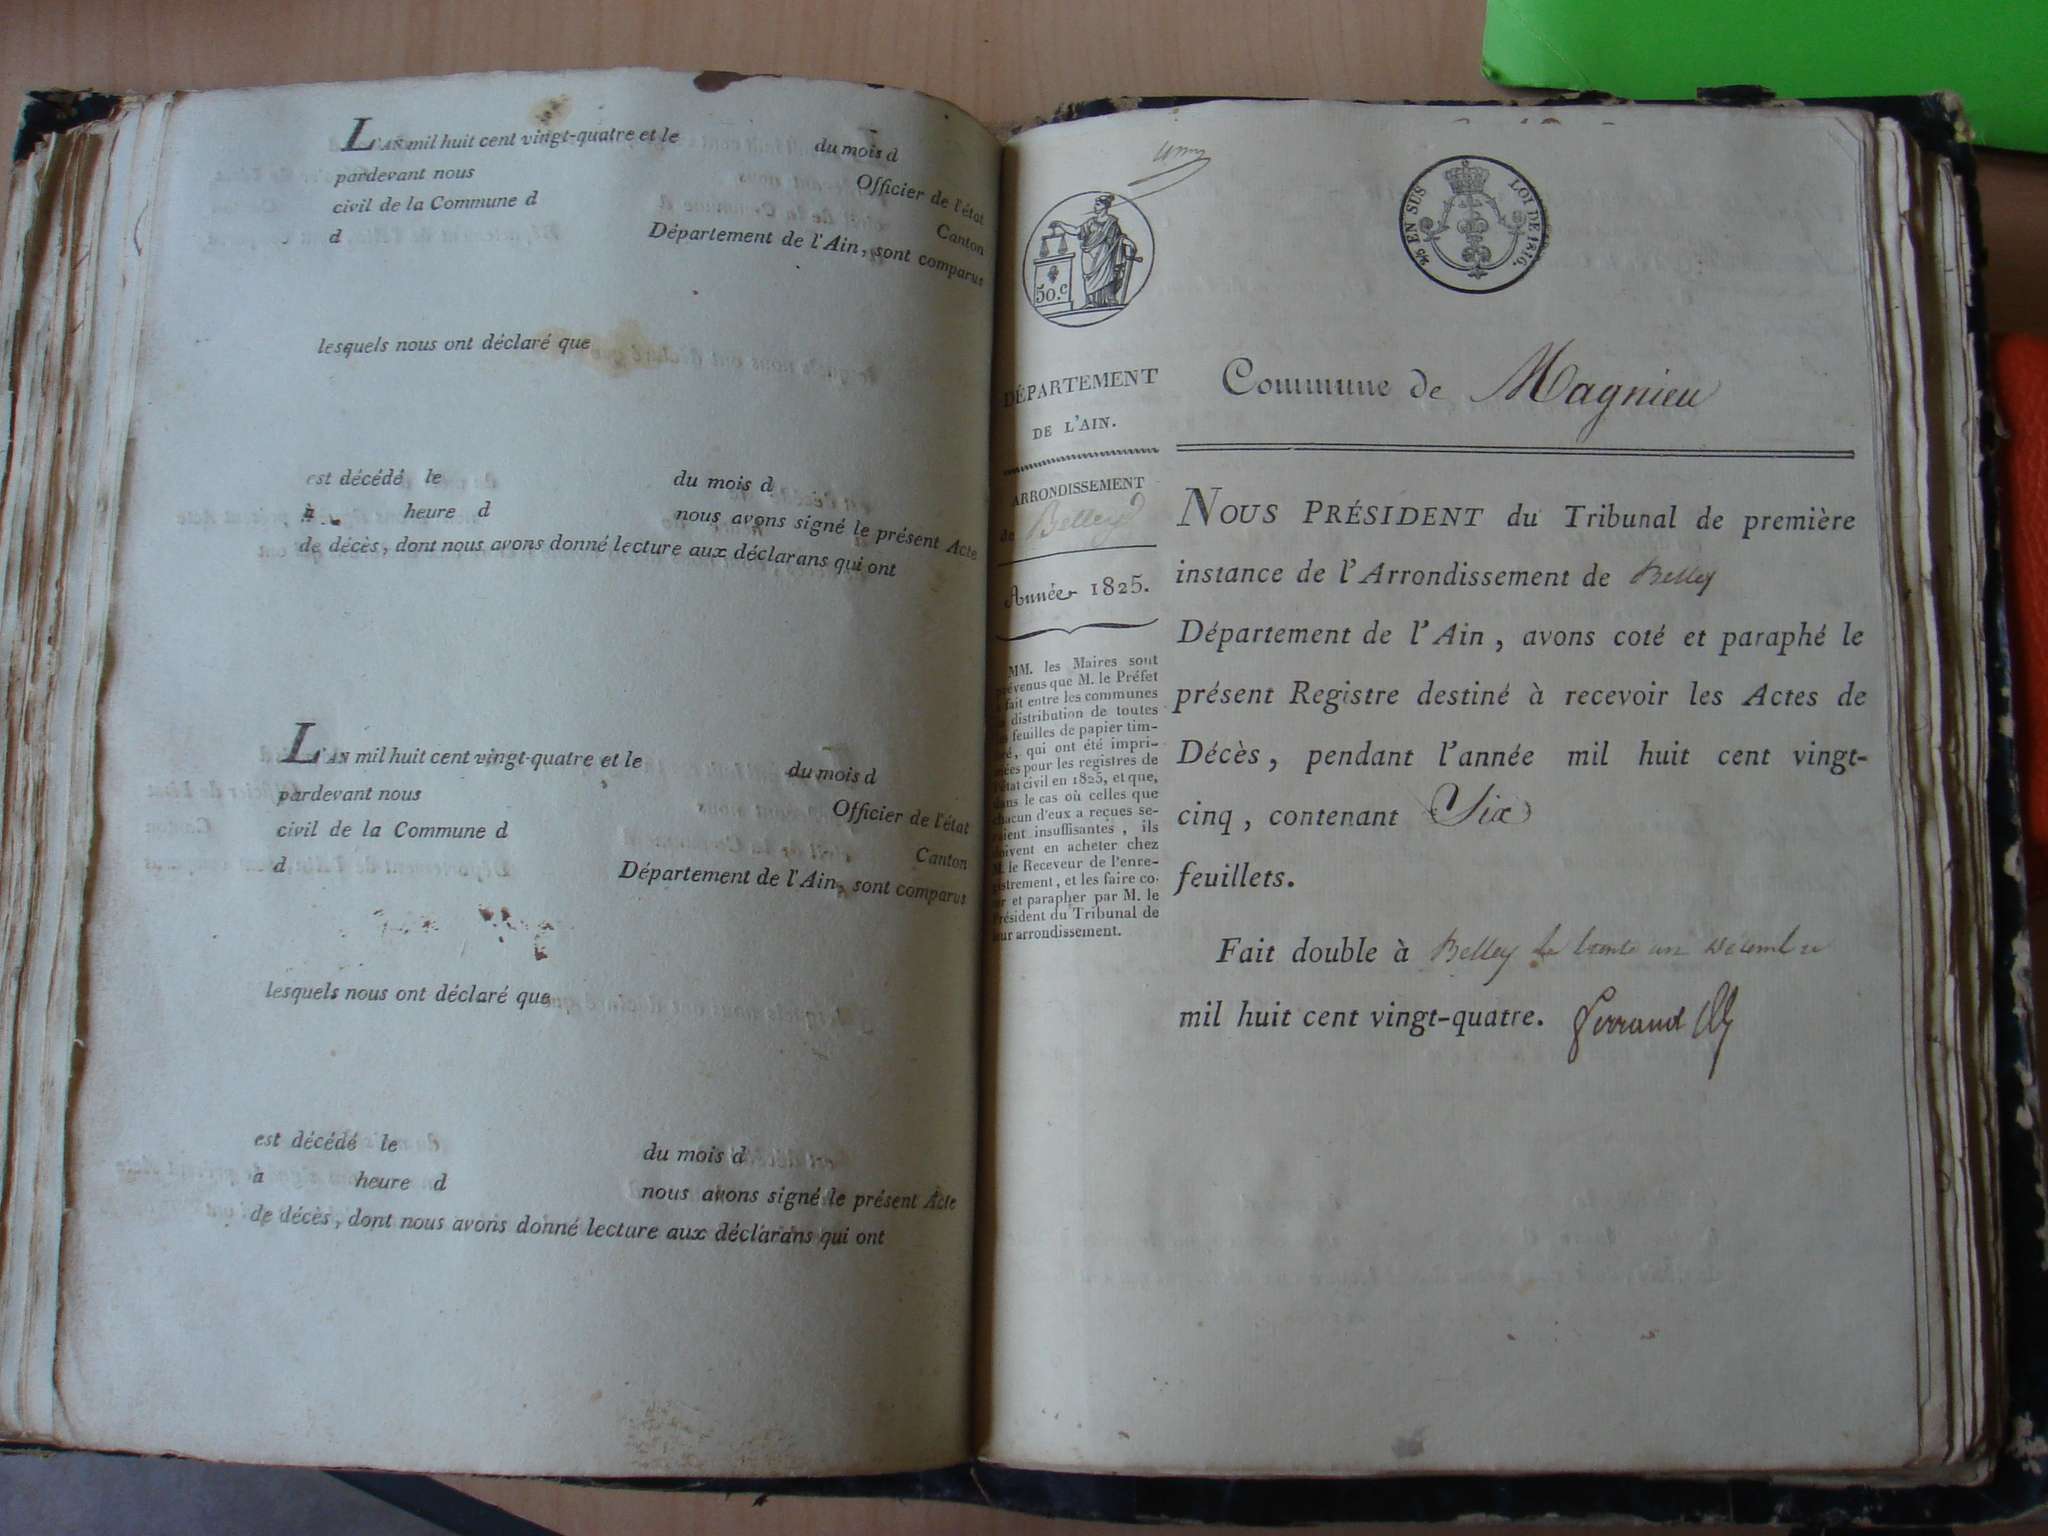 L'AN mil huit cent vingt-quatre et le du mois d
pardevant nous Officier de l'état
civil de la Commune d Canton
d Département de l'Ain, sont comparus
lesquels nous ont déclaré que
est décédé le du mois d
à heure d nous avons signé le présent Acte
de décès, dont nous avons donné lecture aux déclarans qui ont
L'AN mil huit cent vingt-quatre et le du mois d
pardevant nous Officier de l'état
civil de la Commune d Canton
d Département de l'Ain, sont comparus
lesquels nous ont déclaré que
est décédé le du mois d
à heure d nous avons signé le présent Acte
de décès, dont nous avons donné lecture aux déclarans qui ont
50.c
EN SUS LOI DE 1816.
DÉPARTEMENT
DE L'AIN.
ARRONDISSEMENT
de Belley
Année 1825.
MM. les Maires sont
prévenus que M. le Préfet
a fait entre les communes
la distribution de toutes
les feuilles de papier tim-
bré, qui ont été impri-
mées pour les registres de
l'état civil en 1825, et que,
dans le cas où celles que
chacun d'eux a reçues se-
raient insuffisantes, ils
doivent en acheter chez
M. le Receveur de l'enre-
gistrement, et les faire co-
ter et parapher par M. le
Président du Tribunal de
leur arrondissement.
Commune de Magnieu
NOUS PRÉSIDENT du Tribunal de première
instance de l'Arrondissement de Belley
Département de l'Ain, avons coté et paraphé le
présent Registre destiné à recevoir les Actes de
Décès, pendant l'année mil huit cent vingt-
cinq, contenant Six
feuillets.
Fait double à Belley le trente un décembre
mil huit cent vingt-quatre. ferrand